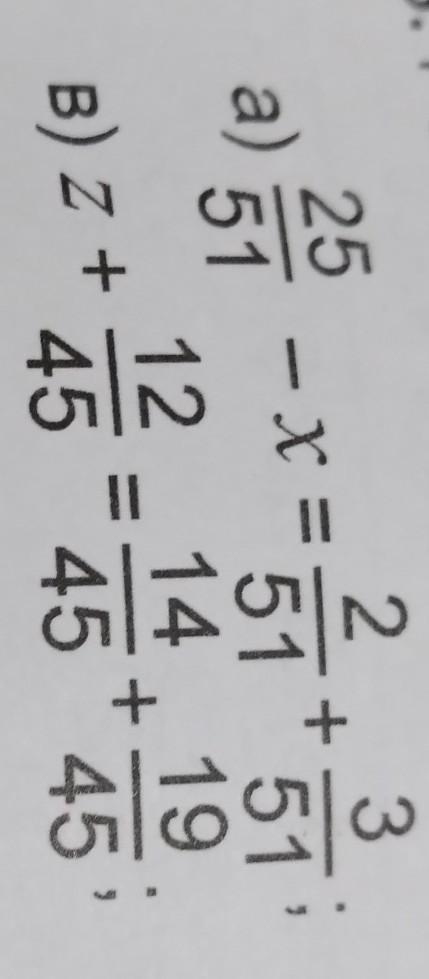 а) 25/51 − x = 2/51 + 3/51;
в) z + 12/45 = 14/45 + 19/45;